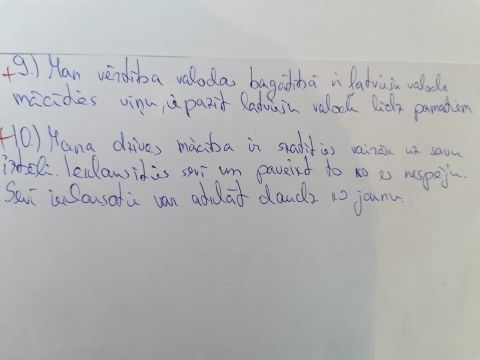 +9.) Man vērtība valodas bagātībā ir latviešu valoda
mācīties viņu, iepazīt latviešu valodu līdz pamatiem.
+10.) Mana dzīves mācība ir skatīties vairāk uz savu
Ieklausīties sevī un paveikt to ko es nespēju.
Sevī ieklausoties var atklāt daudz ko jaunu.